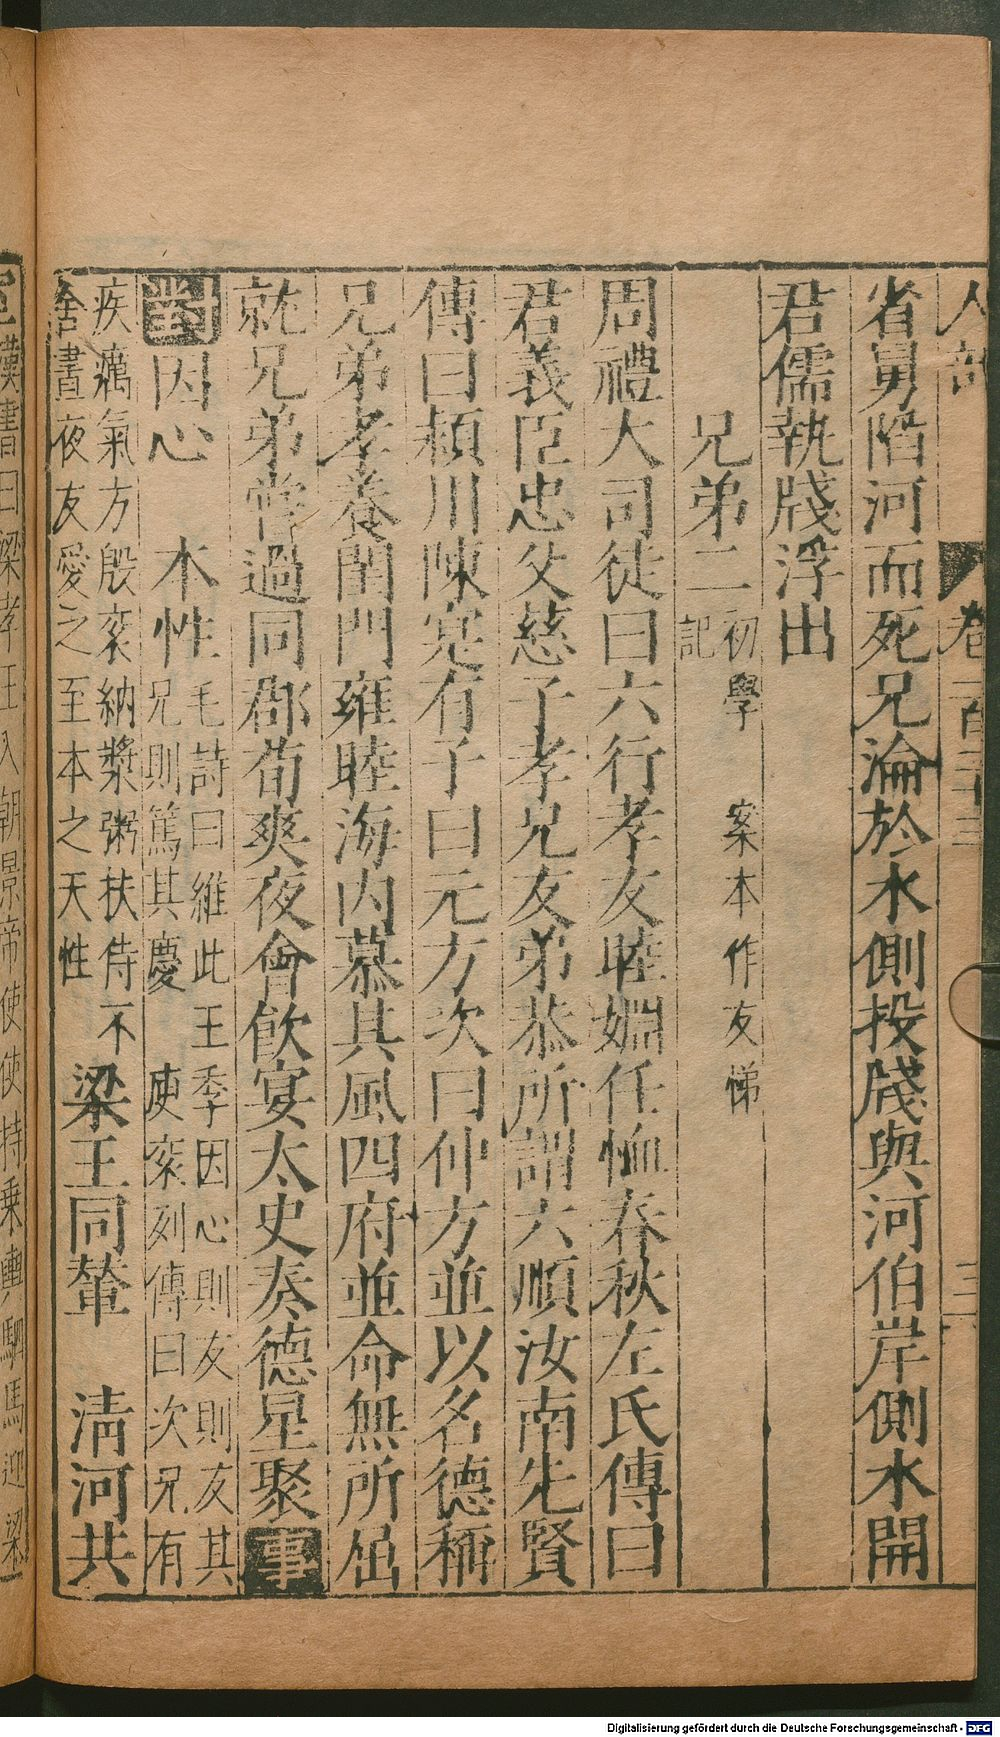 人部 卷一百三十三 三
省舅陷河而死兄淪於水側投牋與河伯岸側水開
君儒執牋浮出
兄弟二初學記 案本作友悌
周禮大司徒曰六行孝友睦婣任恤春秋左氏傳曰
君義臣忠父慈子孝兄友弟恭所謂六順汝南先賢
傳曰潁川陳寔有子曰元方次曰仲方並以名德稱
兄弟孝養閨門雍睦海內慕其風四府並命無所屈
就兄弟嘗過同郡荀爽夜會飲宴太史奏德星聚事
因心 本性毛詩曰維此王季因心則友則友其
兄則篤其慶 庾袞列傳曰次兄有
疾癘氣方殷袞納漿粥扶侍不
舍晝夜友愛之至本之天性 梁王同輦 清河共
漢書曰梁孝王入朝景帝使使持乗輿駟馬迎梁
Digitalisierung gefördert durch die Deutsche Forschungsgemeinschaft - DFG